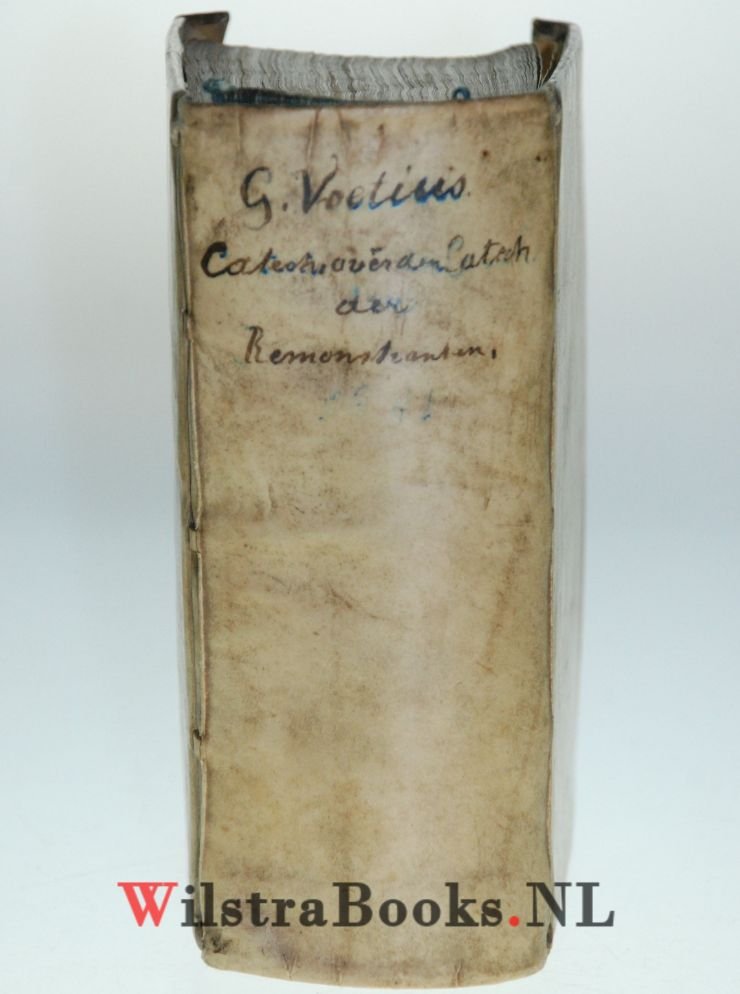 G. Voetius.
Catech over den Catech
der
Remonstranten.
WilstraBooks.NL